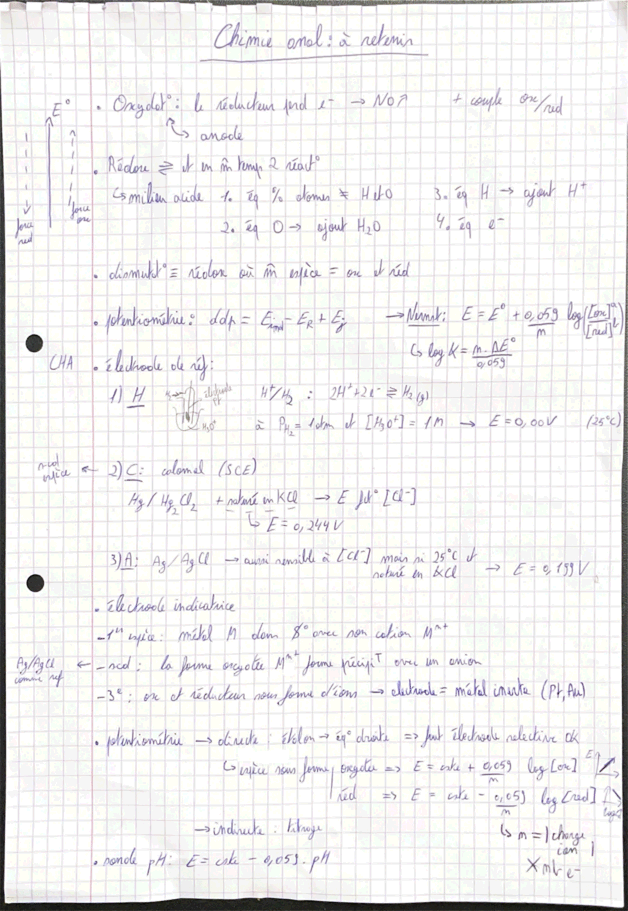 Chimie anal : à retenir
E°
• Oxydat° : le réducteur perd e⁻ → NO↗ + couple ox/red
↳ anode
force red
force ox
• Rédox ⇌ et en m̂ temps 2 réact°
↳ milieu acide 1. éq % atomes ≠ H et O 3. éq H → ajout H⁺
2. éq O → ajout H₂O 4. éq e⁻
• dismut° ≡ rédox où m̂ espèce = ox et réd
• potentiométrie : ddp = E_ind - E_R + E_j → Nernst : E = E° + 0,059/n log([ox]ᵃ/[red]ᵇ)
↳ log K = n.ΔE°/0,059
CHA • électrode de réf :
1) H électrode H₃O⁺ H⁺/H₂ : 2H⁺ + 2e⁻ ⇌ H₂(g)
à P_H₂ = 1 atm et [H₃O⁺] = 1M → E = 0,00V (25°C)
espèce ← 2) C : calomel (SCE)
Hg/Hg₂Cl₂ + saturé en KCl → E fct° [Cl⁻]
↳ E = 0,244V
3) A : Ag/AgCl → aussi sensible à [Cl⁻] mais si 25°C et
saturé en KCl → E = 0,199V
• électrode indicatrice
- 1ʳᵉ espèce : métal M dans S° avec son cation Mⁿ⁺
Ag/AgCl comme ref ← - scd : la forme oxydée Mⁿ⁺ forme précipiᵀ avec un anion
- 3ᵉ : ox et réducteur sous forme d'ions → électrode = métal inerte (Pt, Au)
• potentiométrie → directe : étalon → éq° droite => faut électrode selective ok
↳ espèce sous forme oxydée => E = cste + 0,059/n log[ox] E
réd => E = cste - 0,059/n log[red]
→ indirecte : titrage
↳ n = |charge ion|
✗ nb e⁻
• sonde pH : E = cste - 0,059.pH